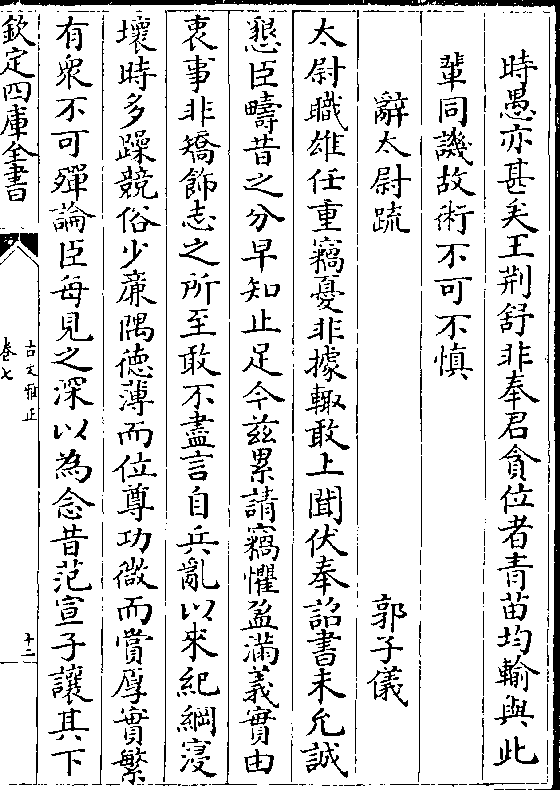 時愚亦甚矣王荆舒非奉君貪位者青苗均輸與此
輩同譏故術不可不慎
辭太尉䟽　郭子儀
太尉職雄任重竊憂非據輙敢上聞伏奉詔書未允誠
懇臣疇昔之分早知止足今兹累請竊懼盈滿義實由
衷事非矯飾志之所至敢不盡言自兵亂以來紀綱寖
壞時多躁競俗少廉隅德薄而位尊功微而賞厚實繁
有衆不可殫論臣每見之深以為念昔范宣子讓其下
欽定四庫全書
古文雅正
卷七
十二